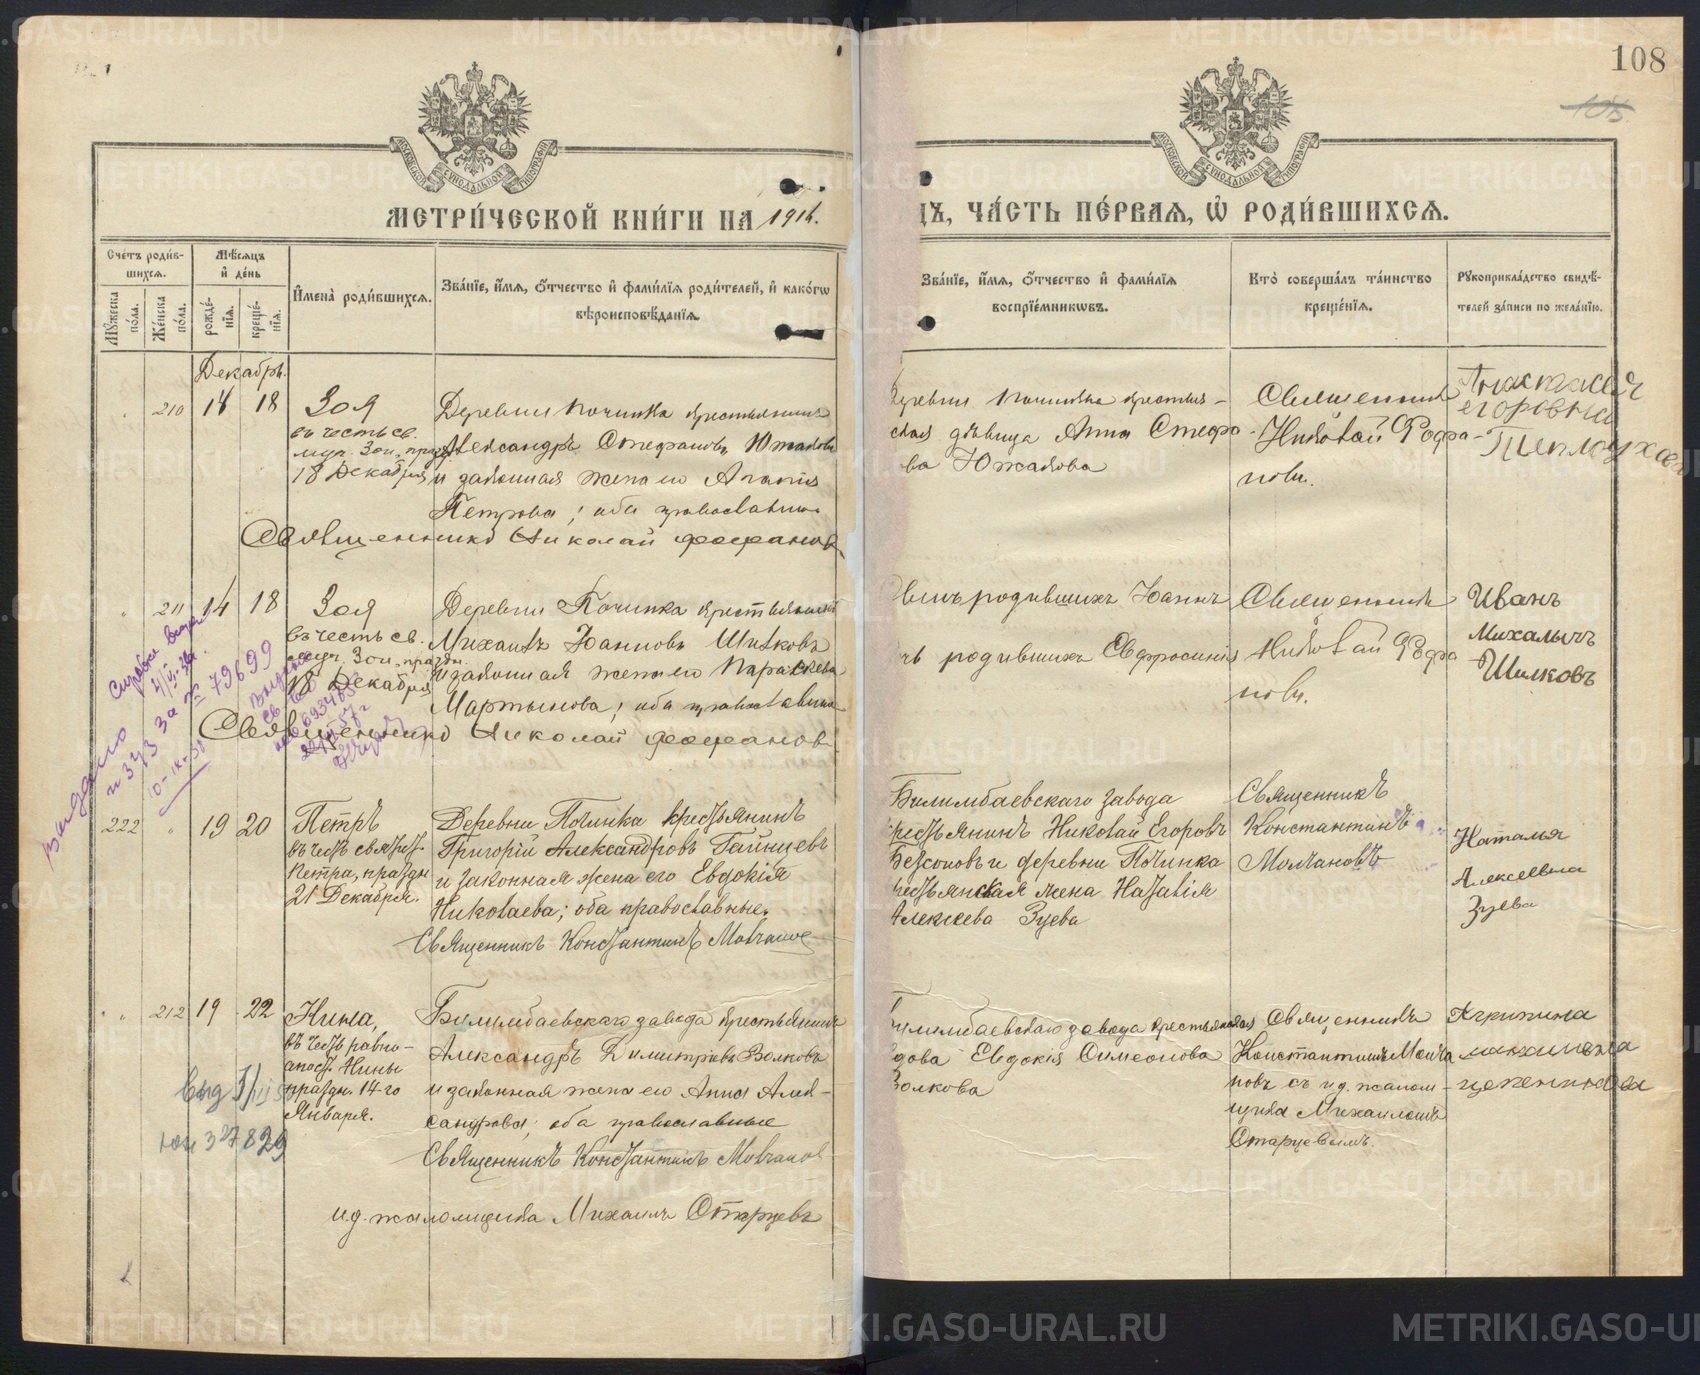 108
105
МОСКОВСКОЙ СѴНОДАЛЬНОЙ ТИПОГРАФІИ
МОСКОВСКОЙ СѴНОДАЛЬНОЙ ТИПОГРАФІИ
МЕТРИ́ЧЕСКОЙ КНИ́ГИ НА 1916.
Ч́АСТЬ ПЕ́РВАЯ, Ѽ РОДИ́ВШИХСЯ.
Счетъ роди́в-
шихся.
Мѣсяцъ
и де́нь
Мꙋжеска
по́ла.
Же́нска
по́ла.
рожде́-
нїя.
креще́-
нїя.
И҆мена̀ роди́вшихся.
Зва́нїе, и҆́мя, ѻ҆́тчество и҆ фами́лїя роди́телей, и҆ како́гѡ
вѣроисповѣ́данїя.
Зва́нїе, и҆́мя, ѻ҆́тчество и҆ фами́лїя
воспрїе́мникѡвъ.
Кто̀ соверша́лъ та́инство
креще́нїя.
Рꙋкоприкла́дство свидѣ́-
телей за́писи по жела́нїю.
Декабрь.
210 14 18
Зоя
въ честь св.
муч. Зои, празд.
18 Декабря
Деревни Починка крестьянинъ
Александръ Стефановъ Южаковъ
и законная жена его
Петрова; оба православные.
Священникъ Николай Фофановъ
крестьян-
ская дѣвица Анна Стефа-
ва Южакова
Священникъ
Николай Фофа-
новъ.
Анастасия
егоровна
Теплоухова
211 14 18
Зоя
въ честь св.
муч. Зои, празд.
18 Декабря
Деревни Починка крестьянинъ
Михаилъ Іоанновъ Шилковъ
и законная жена его Параскева
Мартынова; оба православные
Священникъ Николай Фофановъ
родившихъ Іоаннъ
родившихъ Евфросинія
Священникъ
Николай Фофа-
новъ.
Иванъ
Михалычъ
Шилковъ
Выдано справка
за № 79699
222 19 20
Петръ
въ честь свят.
Петра, праздн.
21 Декабря.
Деревни Починка крестьянинъ
Григорій Александровъ Гайнцевъ
и законная жена его Евдокія
Николаева; оба православные.
Священникъ Константинъ Молчанов
Билимбаевскаго завода
крестьянинъ Николай Егоровъ
Безсоновъ и деревни Починка
крестьянская жена Наталія
Алексеева Зуева
Священникъ
Константинъ
Молчановъ
Наталья
Алексеевна
Зуева
212 19 22
Нина,
въ честь равно-
апост. Нины
праздн. 14-го
Января.
Билимбаевскаго завода крестьянинъ
Александръ Димитріевъ Волковъ
и законная жена его Анна Алек-
сандрова; оба православные
Священникъ Константинъ Молчанов
и.д. псаломщика Михаилъ Старцевъ
Билимбаевскаго завода крестьянская
вдова Евдокія Симеонова
Волкова
Священникъ
Константинъ Молча-
новъ съ и.д. псалом-
щика Михаиломъ
Старцевымъ.
METRIKI.GASO-URAL.RU